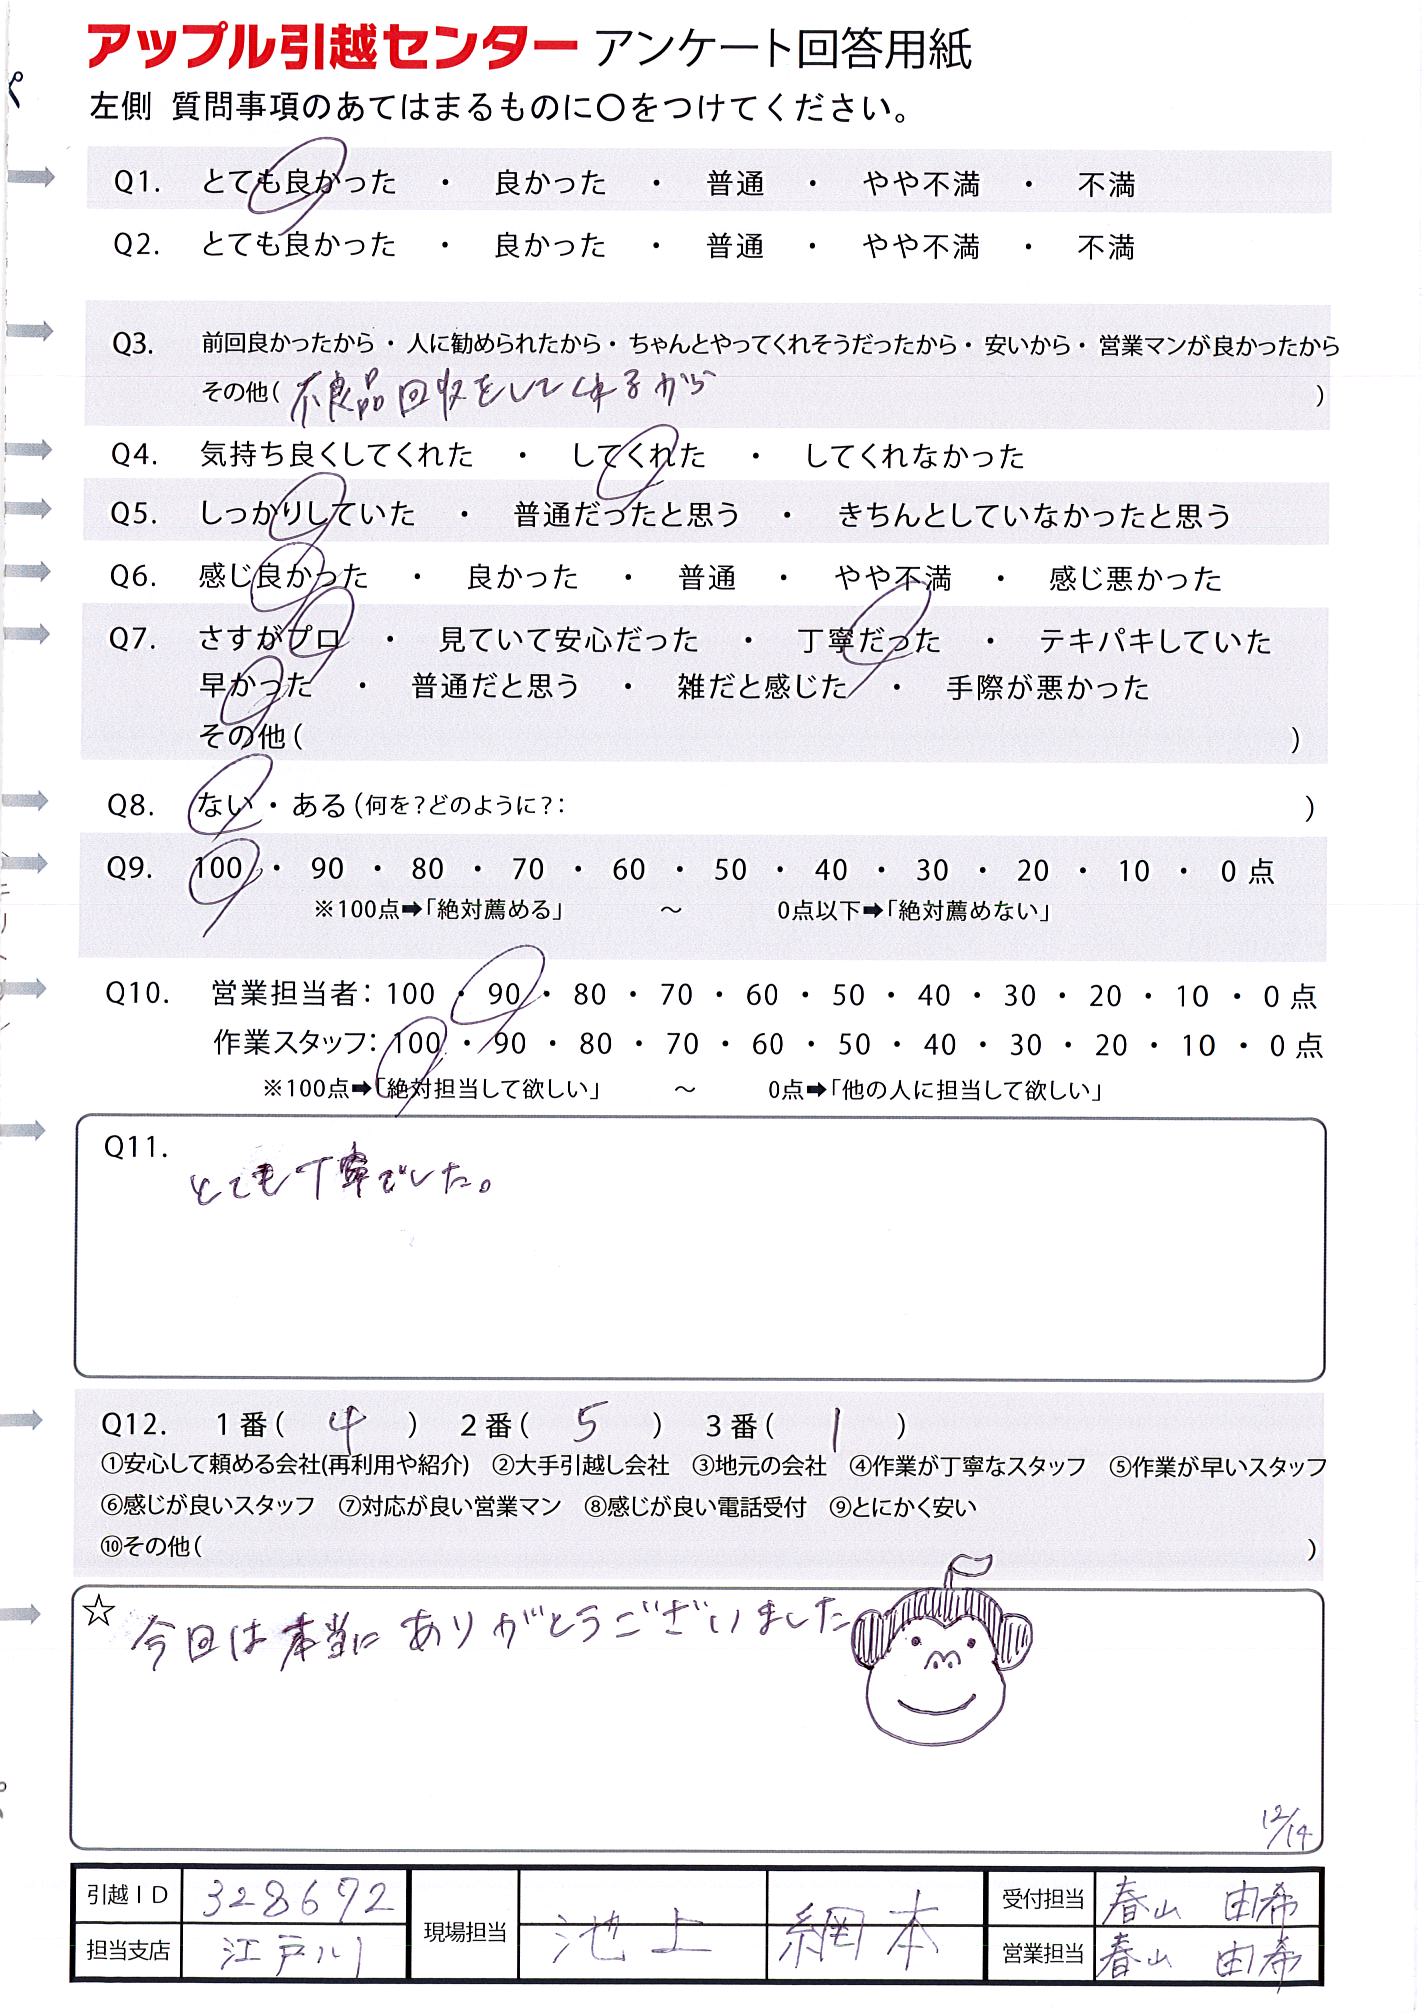 アップル引越センター アンケート回答用紙
左側 質問事項のあてはまるものに〇をつけてください。
Q1. とても良かった ・ 良かった ・ 普通 ・ やや不満 ・ 不満
Q2. とても良かった ・ 良かった ・ 普通 ・ やや不満 ・ 不満
Q3. 前回良かったから・人に勧められたから・ちゃんとやってくれそうだったから・安いから・営業マンが良かったから
その他( 不良品回収をしてくれるから )
Q4. 気持ち良くしてくれた ・ してくれた ・ してくれなかった
Q5. しっかりしていた ・ 普通だったと思う ・ きちんとしていなかったと思う
Q6. 感じ良かった ・ 良かった ・ 普通 ・ やや不満 ・ 感じ悪かった
Q7. さすがプロ ・ 見ていて安心だった ・ 丁寧だった ・ テキパキしていた
早かった ・ 普通だと思う ・ 雑だと感じた ・ 手際が悪かった
その他( )
Q8. ない・ある(何を?どのように?: )
Q9. 100 ・ 90 ・ 80 ・ 70 ・ 60 ・ 50 ・ 40 ・ 30 ・ 20 ・ 10 ・ 0点
※100点➡「絶対薦める」 ～ 0点以下➡「絶対薦めない」
Q10. 営業担当者: 100 ・ 90 ・ 80 ・ 70 ・ 60 ・ 50 ・ 40 ・ 30 ・ 20 ・ 10 ・ 0点
作業スタッフ: 100 ・ 90 ・ 80 ・ 70 ・ 60 ・ 50 ・ 40 ・ 30 ・ 20 ・ 10 ・ 0点
※100点➡「絶対担当して欲しい」 ～ 0点➡「他の人に担当して欲しい」
Q11.
とても丁寧でした。
Q12. 1番( 4 ) 2番( 5 ) 3番( 1 )
①安心して頼める会社(再利用や紹介) ②大手引越し会社 ③地元の会社 ④作業が丁寧なスタッフ ⑤作業が早いスタッフ
⑥感じが良いスタッフ ⑦対応が良い営業マン ⑧感じが良い電話受付 ⑨とにかく安い
⑩その他( )
☆ 今回は本当にありがとうございました
12/14
引越ID 328672 現場担当 池上 網本 受付担当 春山 由希
担当支店 江戸川 営業担当 春山 由希